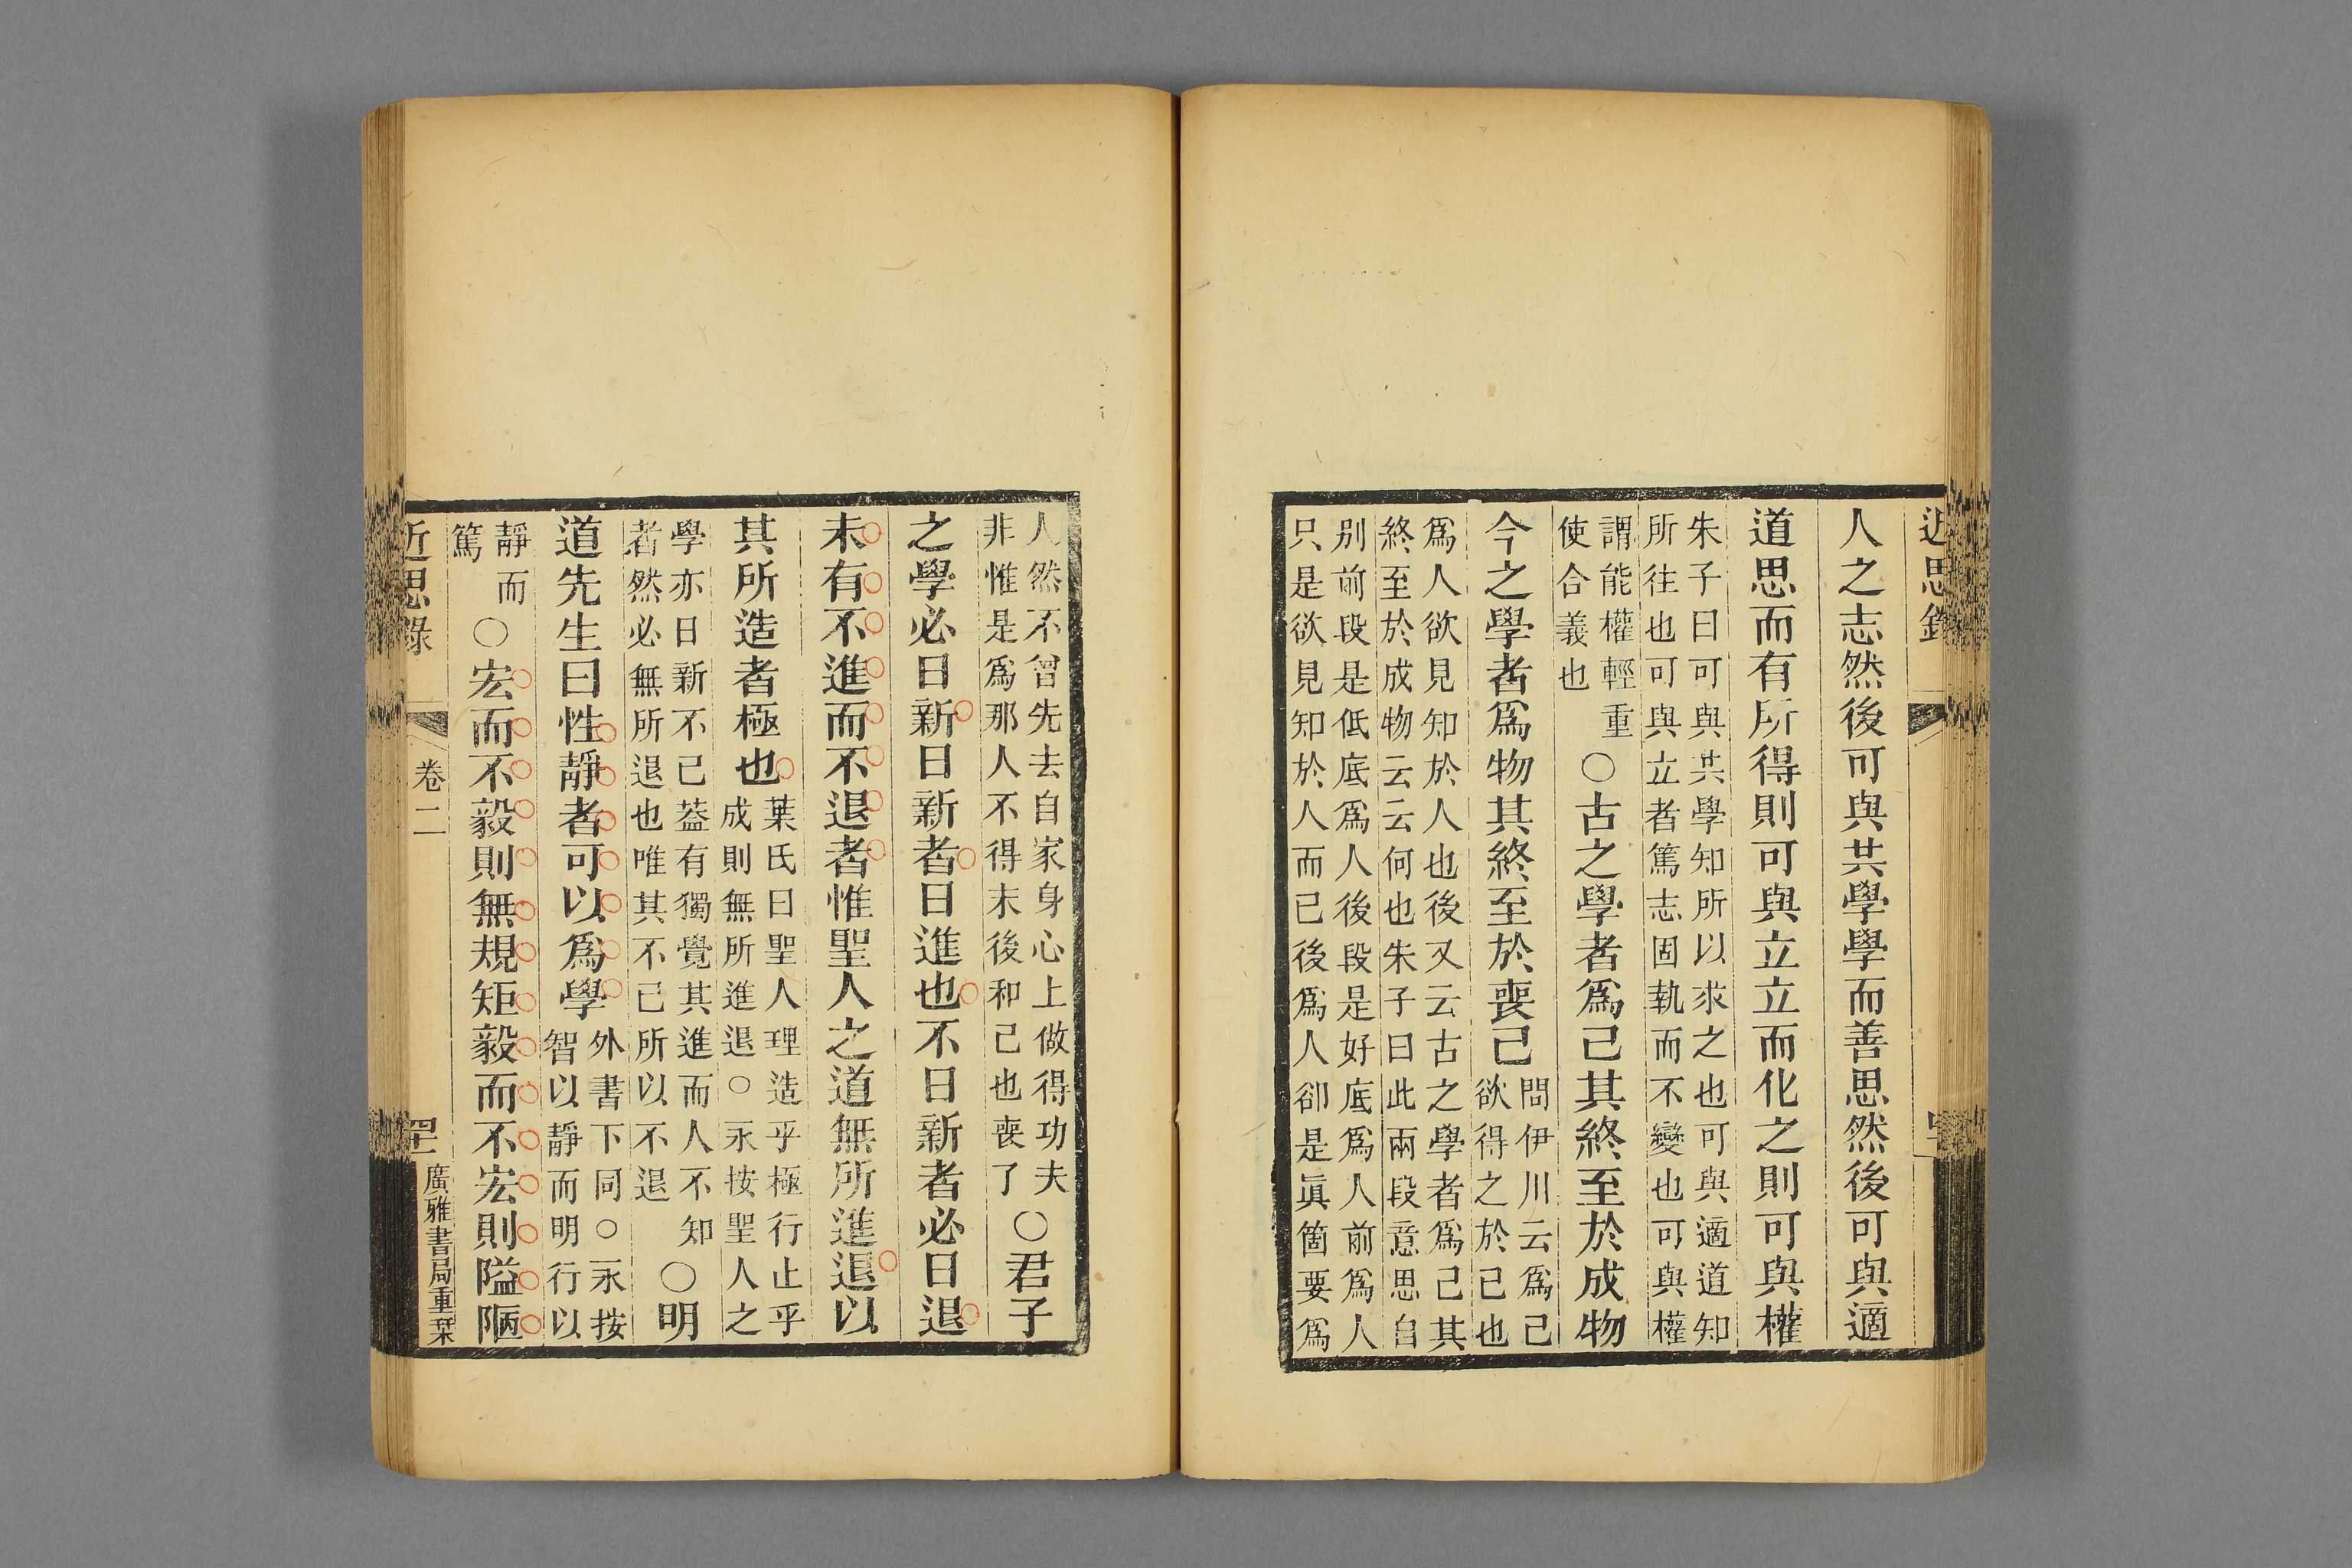 近思錄
人之志然後可與共學學而善思然後可與適
道思而有所得則可與立立而化之則可與權
朱子曰可與共學知所以求之也可與適道知
所往也可與立者篤志固執而不變也可與權
謂能權輕重
使合義也
○古之學者爲己其終至於成物
今之學者爲物其終至於喪己
問伊川云爲己
欲得之於己也
爲人欲見知於人也後又云古之學者爲己其
終至於成物云云何也朱子曰此兩段意思自
別前段是低底爲人後段是好底爲人前爲人
只是欲見知於人而已後爲人卻是眞箇要爲
人然不曾先去自家身心上做得功夫
非惟是爲那人不得末後和己也喪了
○君子
之學必日新日新者日進也不日新者必日退
未有不進而不退者惟聖人之道無所進退以
其所造者極也
葉氏曰聖人理造乎極行止乎
成則無所進退○永按聖人之
學亦日新不已葢有獨覺其進而人不知
者然必無所退也唯其不已所以不退
○明
道先生曰性靜者可以爲學
外書下同○永按
智以靜而明行以
靜而
篤
○宏而不毅則無規矩毅而不宏則隘陋
近思錄
卷二
廣雅書局重栞